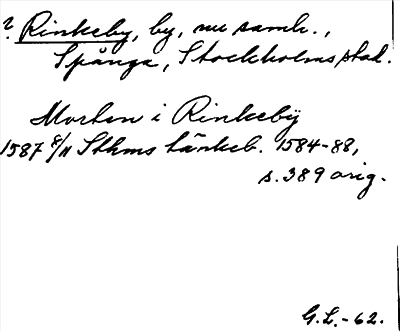 ? Rinkeby, by, nu samh.,
Spånga, Stockholms stad.
Morten i Rinkeby
1587 8/11 Sthms tänkeb. 1584-88,
s. 389 orig.
G.L.-62.